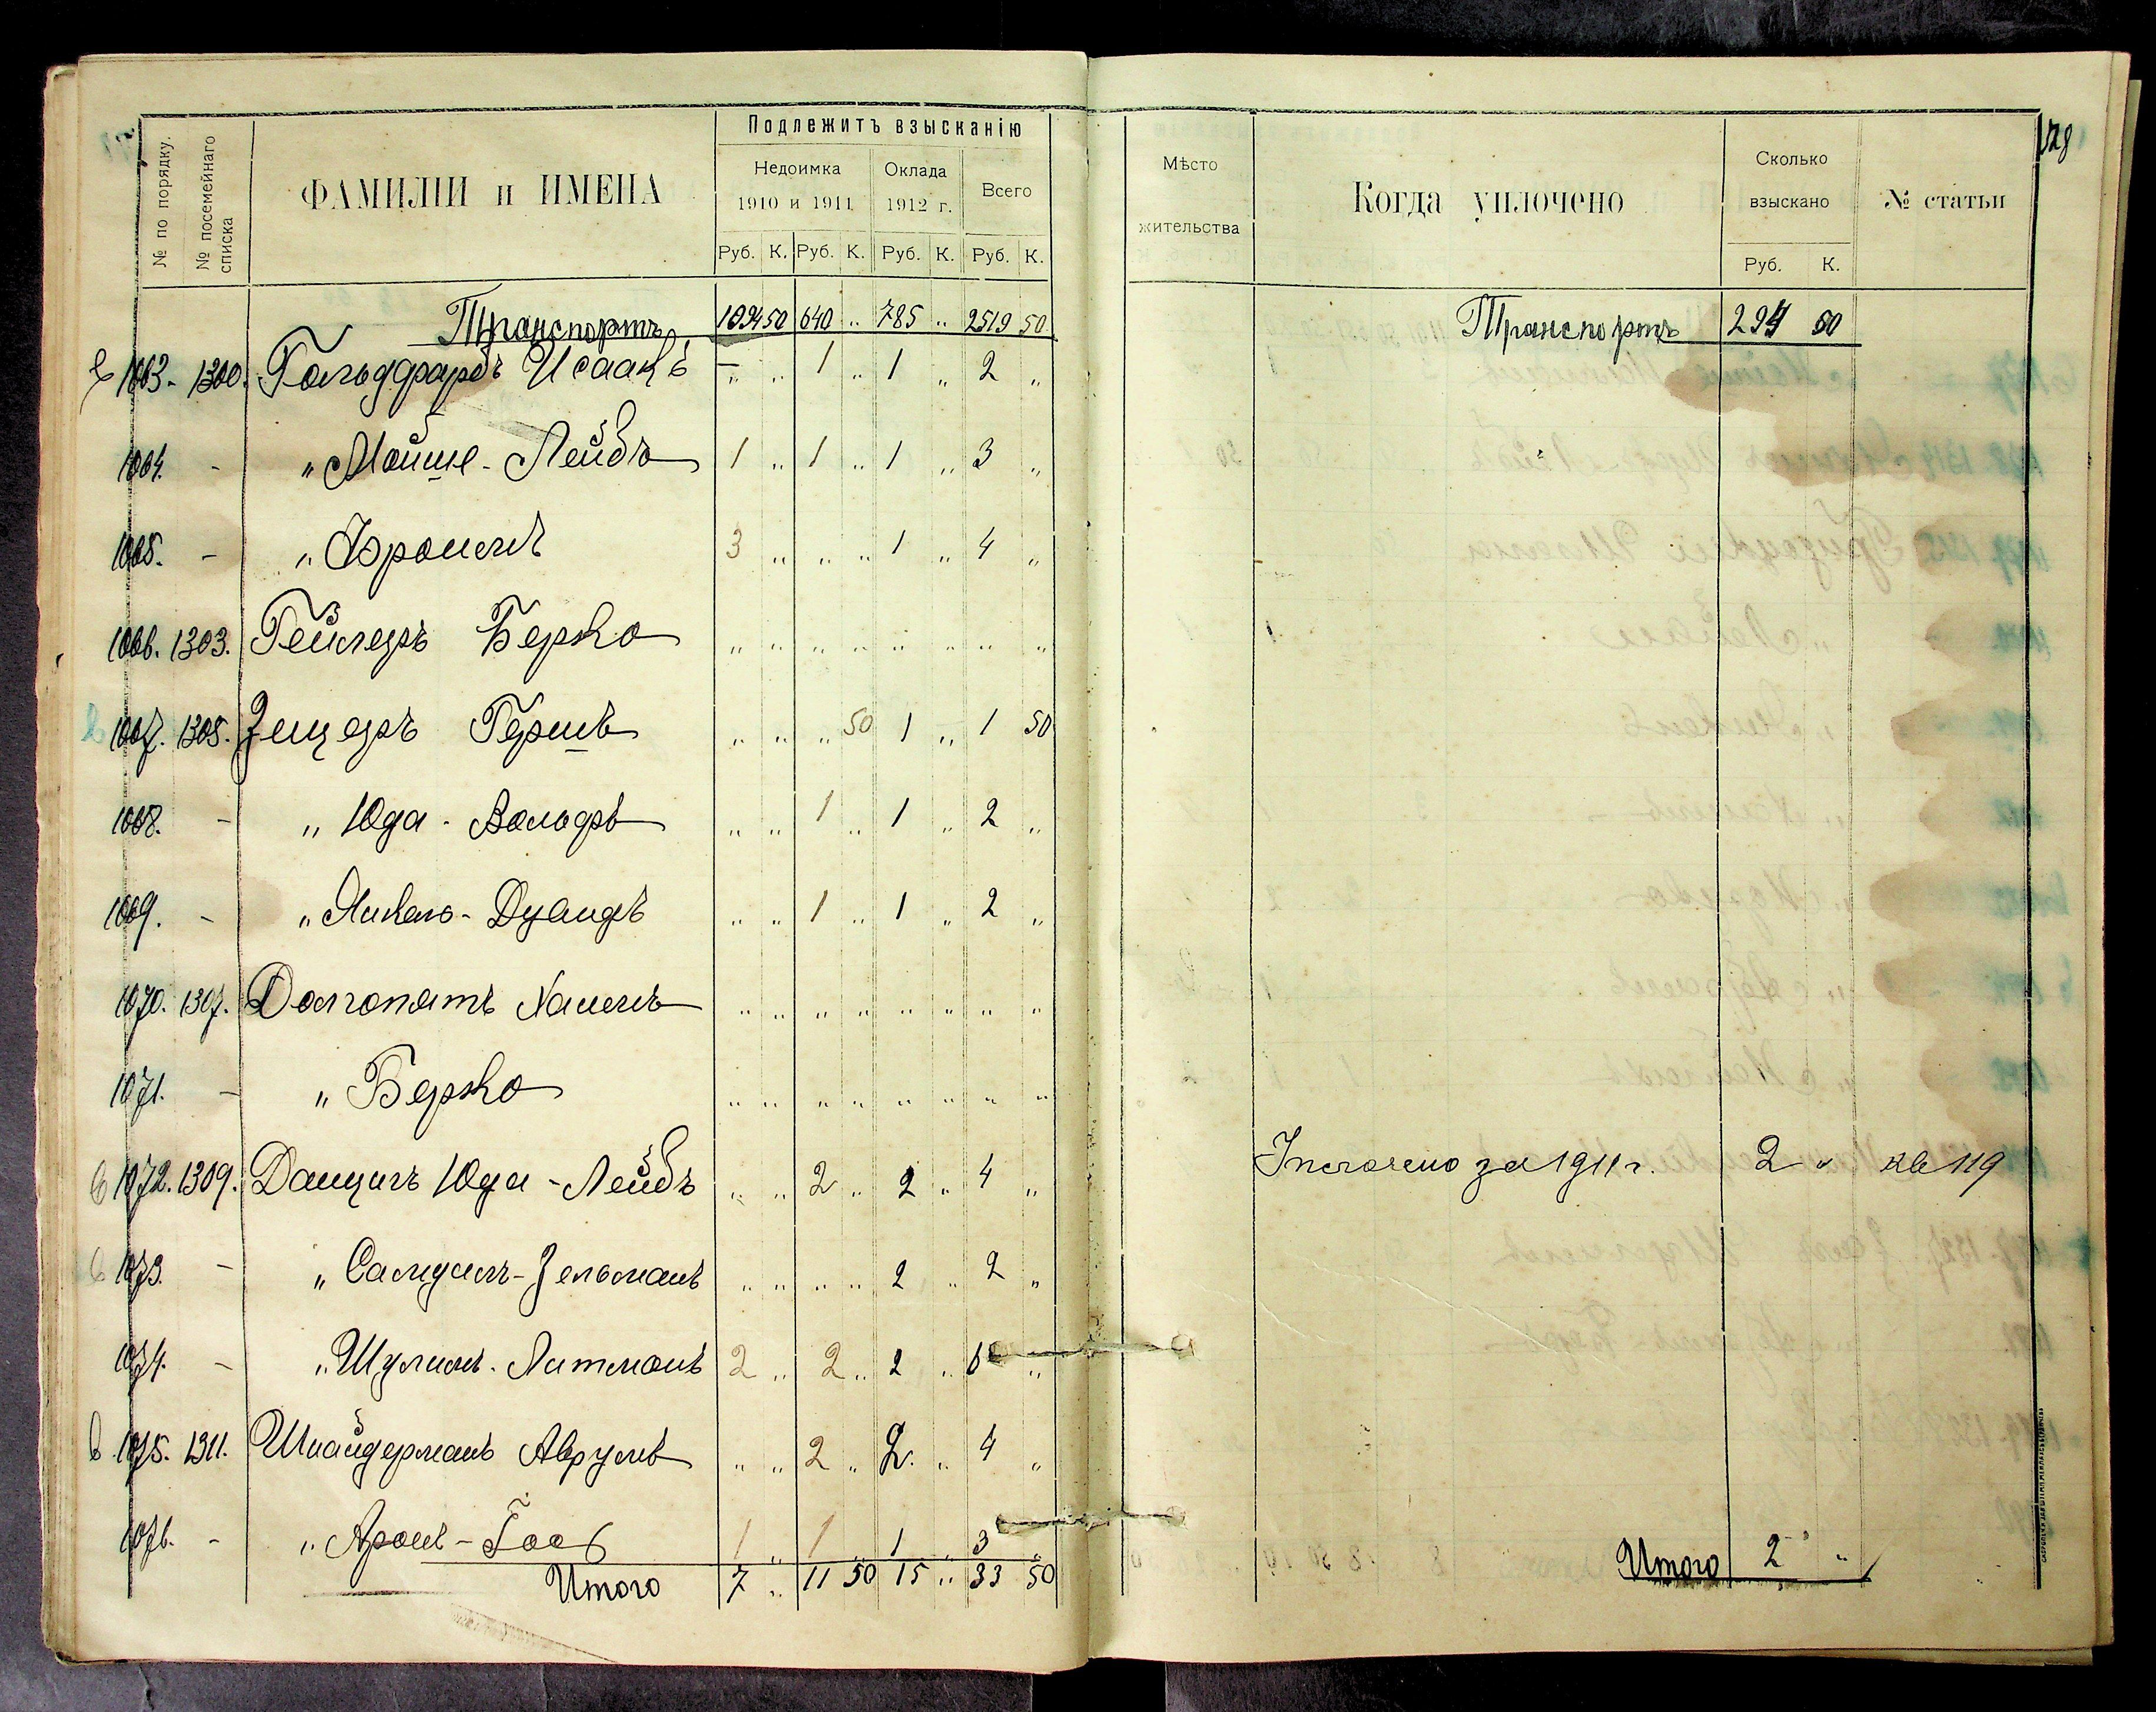 128
№ по порядку.
№ посемейнаго списка
ФАМИЛІИ и ИМЕНА
Подлежитъ взысканію
Недоимка
1910 и 1911
Оклада
1912 г.
Всего
Руб. К. Руб. К. Руб. К. Руб. К.
Мѣсто
жительства
Когда уплочено
Сколько
взыскано
Руб. К.
№ статьи
Транспортъ 1094 50 640 " 785 " 2519 50
Транспортъ 294 50
1063. 1300. Гольдфарбъ Исаакъ " " 1 " 1 " 2 "
1064. - " Мойше-Лейбъ 1 " 1 " 1 " 3 "
1065. - " Фроимъ 3 " " " 1 " 4 "
1066. 1303. Гейлеръ Берко " " " " " " " "
1067. 1305. Зецеръ Гершъ " " " 50 1 " 1 50
1068. - " Юда-Вольфъ " " 1 " 1 " 2 "
1069. - " Янкель-Дувидъ " " 1 " 1 " 2 "
1070. 1307. Долгопятъ Хаимъ " " " " " " " "
1071. - " Берко " " " " " " " "
1072. 1309. Данцигъ Юда-Лейбъ " " 2 " 2 " 4 "
за 1911 г. 2 " кв 119
1073. - " Самуилъ-Зельманъ " " " " 2 " 2 "
1074. - " Шулимъ-Литманъ 2 " 2 " 2 " 6 "
1075. 1311. Шнайдерманъ Аврумъ " " 2 " 2. " 4 "
1076. - " Аронъ- 1 " 1 " 1 " 3 "
Итого 7 " 11 50 15 " 33 50
Итого 2 "